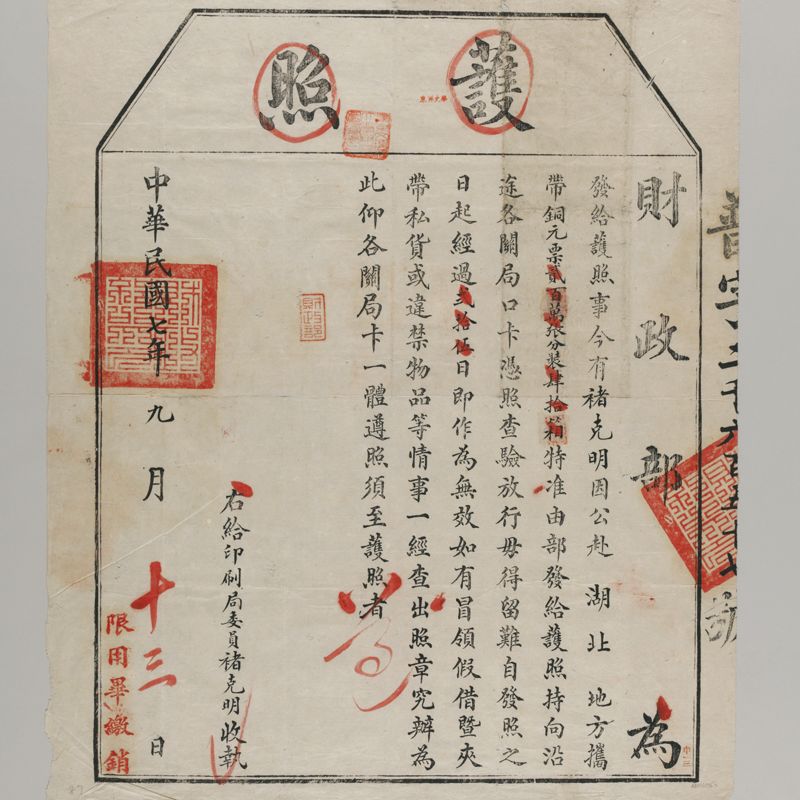 護照
財政部為
發給護照事今有褚克明因公赴湖北地方攜
帶銅元票貳百萬張分裝肆拾箱特准由部發給護照持向沿
途各關局口卡憑照查驗放行毋得留難自發照之
日起經過貳拾伍日即作為無效如有冒領假借暨夾
帶私貨或違禁物品等情事一經查出照章究辦為
此仰各關局卡一體遵照須至護照者
右給印刷局委員褚克明收執
中華民國七年九月十三日
限用畢繳銷
財政部